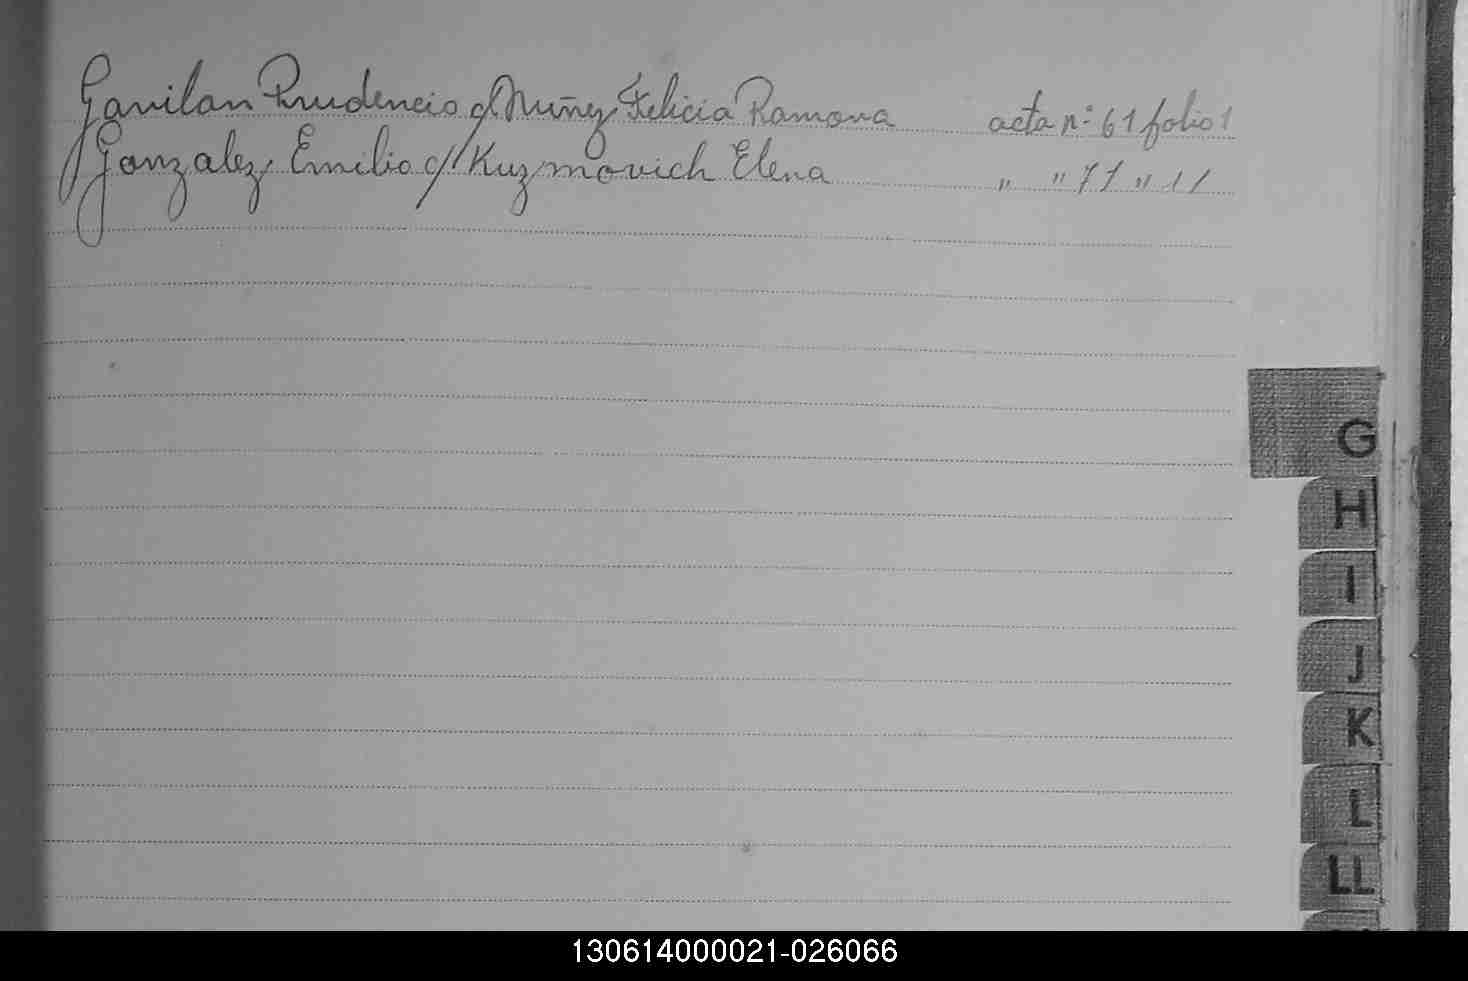 Gavilan Prudencio c/ Nuñez Felicia Ramona acta nº 61 folio 1
Gonzalez Emilio c/ Kuzmovich Elena " " 71 " 11
G
H
I
J
K
L
LL
130614000021-026066